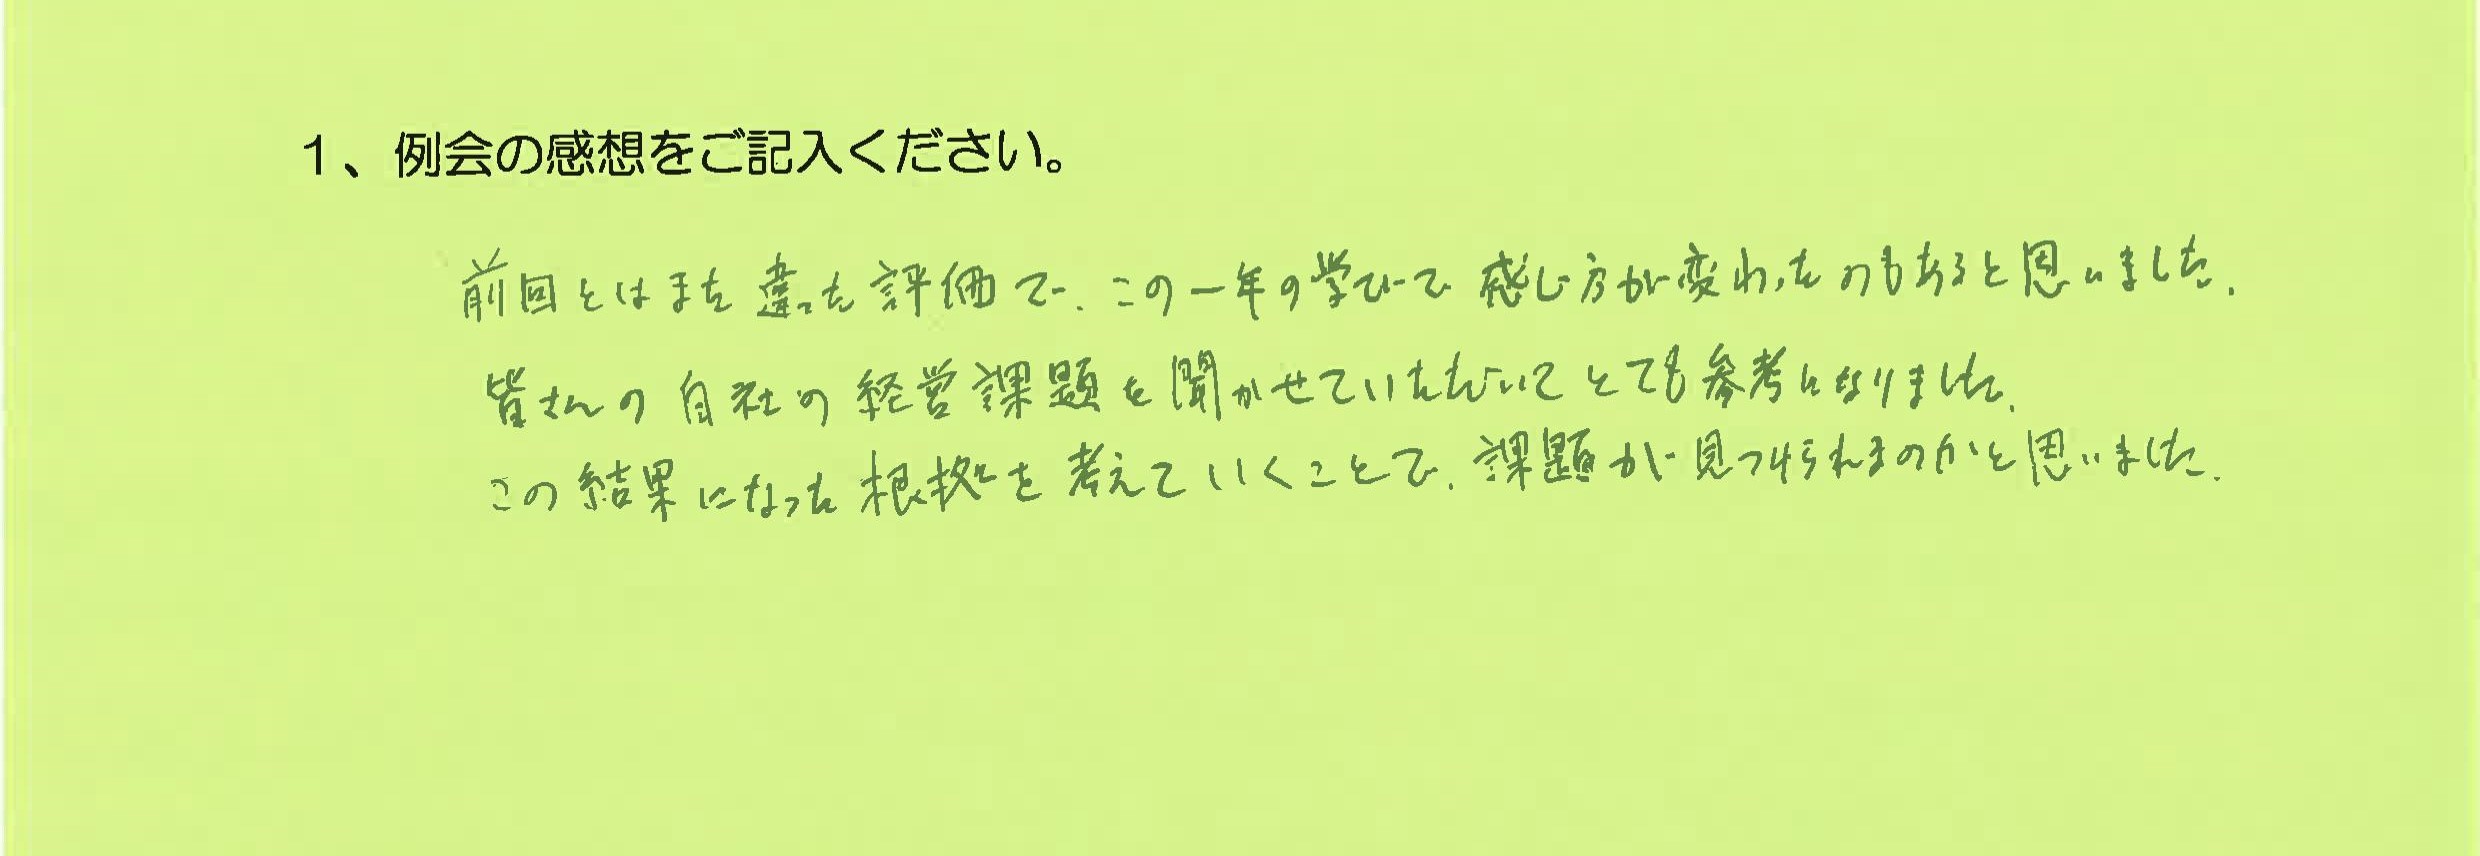 1、例会の感想をご記入ください。
前回とはまた違った評価で、この一年の学びで感じ方が変わったのもあると思いました。
皆さんの自社の経営課題を聞かせていただいてとても参考になりました。
この結果になった根拠を考えていくことで、課題が見つけられるのかと思いました。